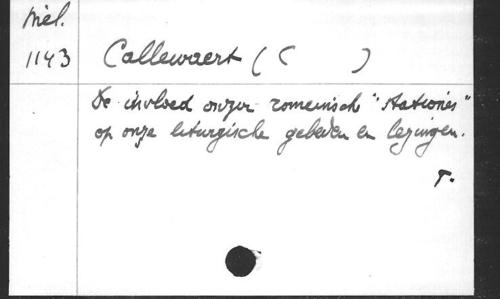 Mel.
1143
Callewaert (C )
De invloed onzer romeinsch "stationes"
op onze liturgische gebeden en lezingen.
T.